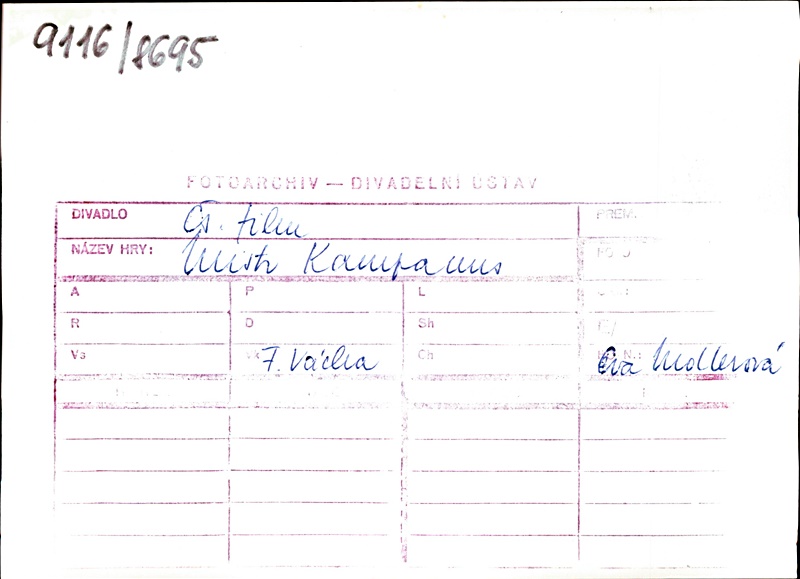 9116/8695
FOTOARCHIV — DIVADELNÍ ÚSTAV
DIVADLO Čs. film PREM.
NÁZEV HRY: Mistr Kampanus
A P L
R D Sh
Vs Vk F. Vácha Ch Eva